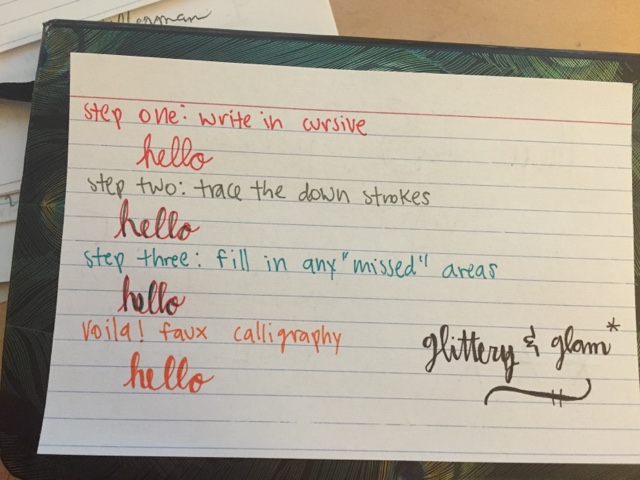 step one: write in cursive
hello
step two: trace the down strokes
hello
step three: fill in any "missed" areas
hello
voila! faux calligraphy
hello
glittery & glam*